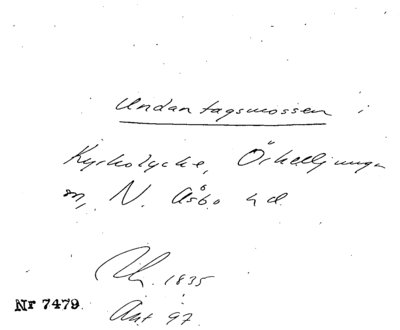 Undantagsmossen i
Kyrkolycke, Örkelljunga
m, N. Åsbo hd.
1835
Nr 7479.
Akt 97.